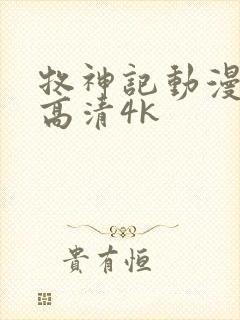 牧神記動漫
高清4K
貴有恒